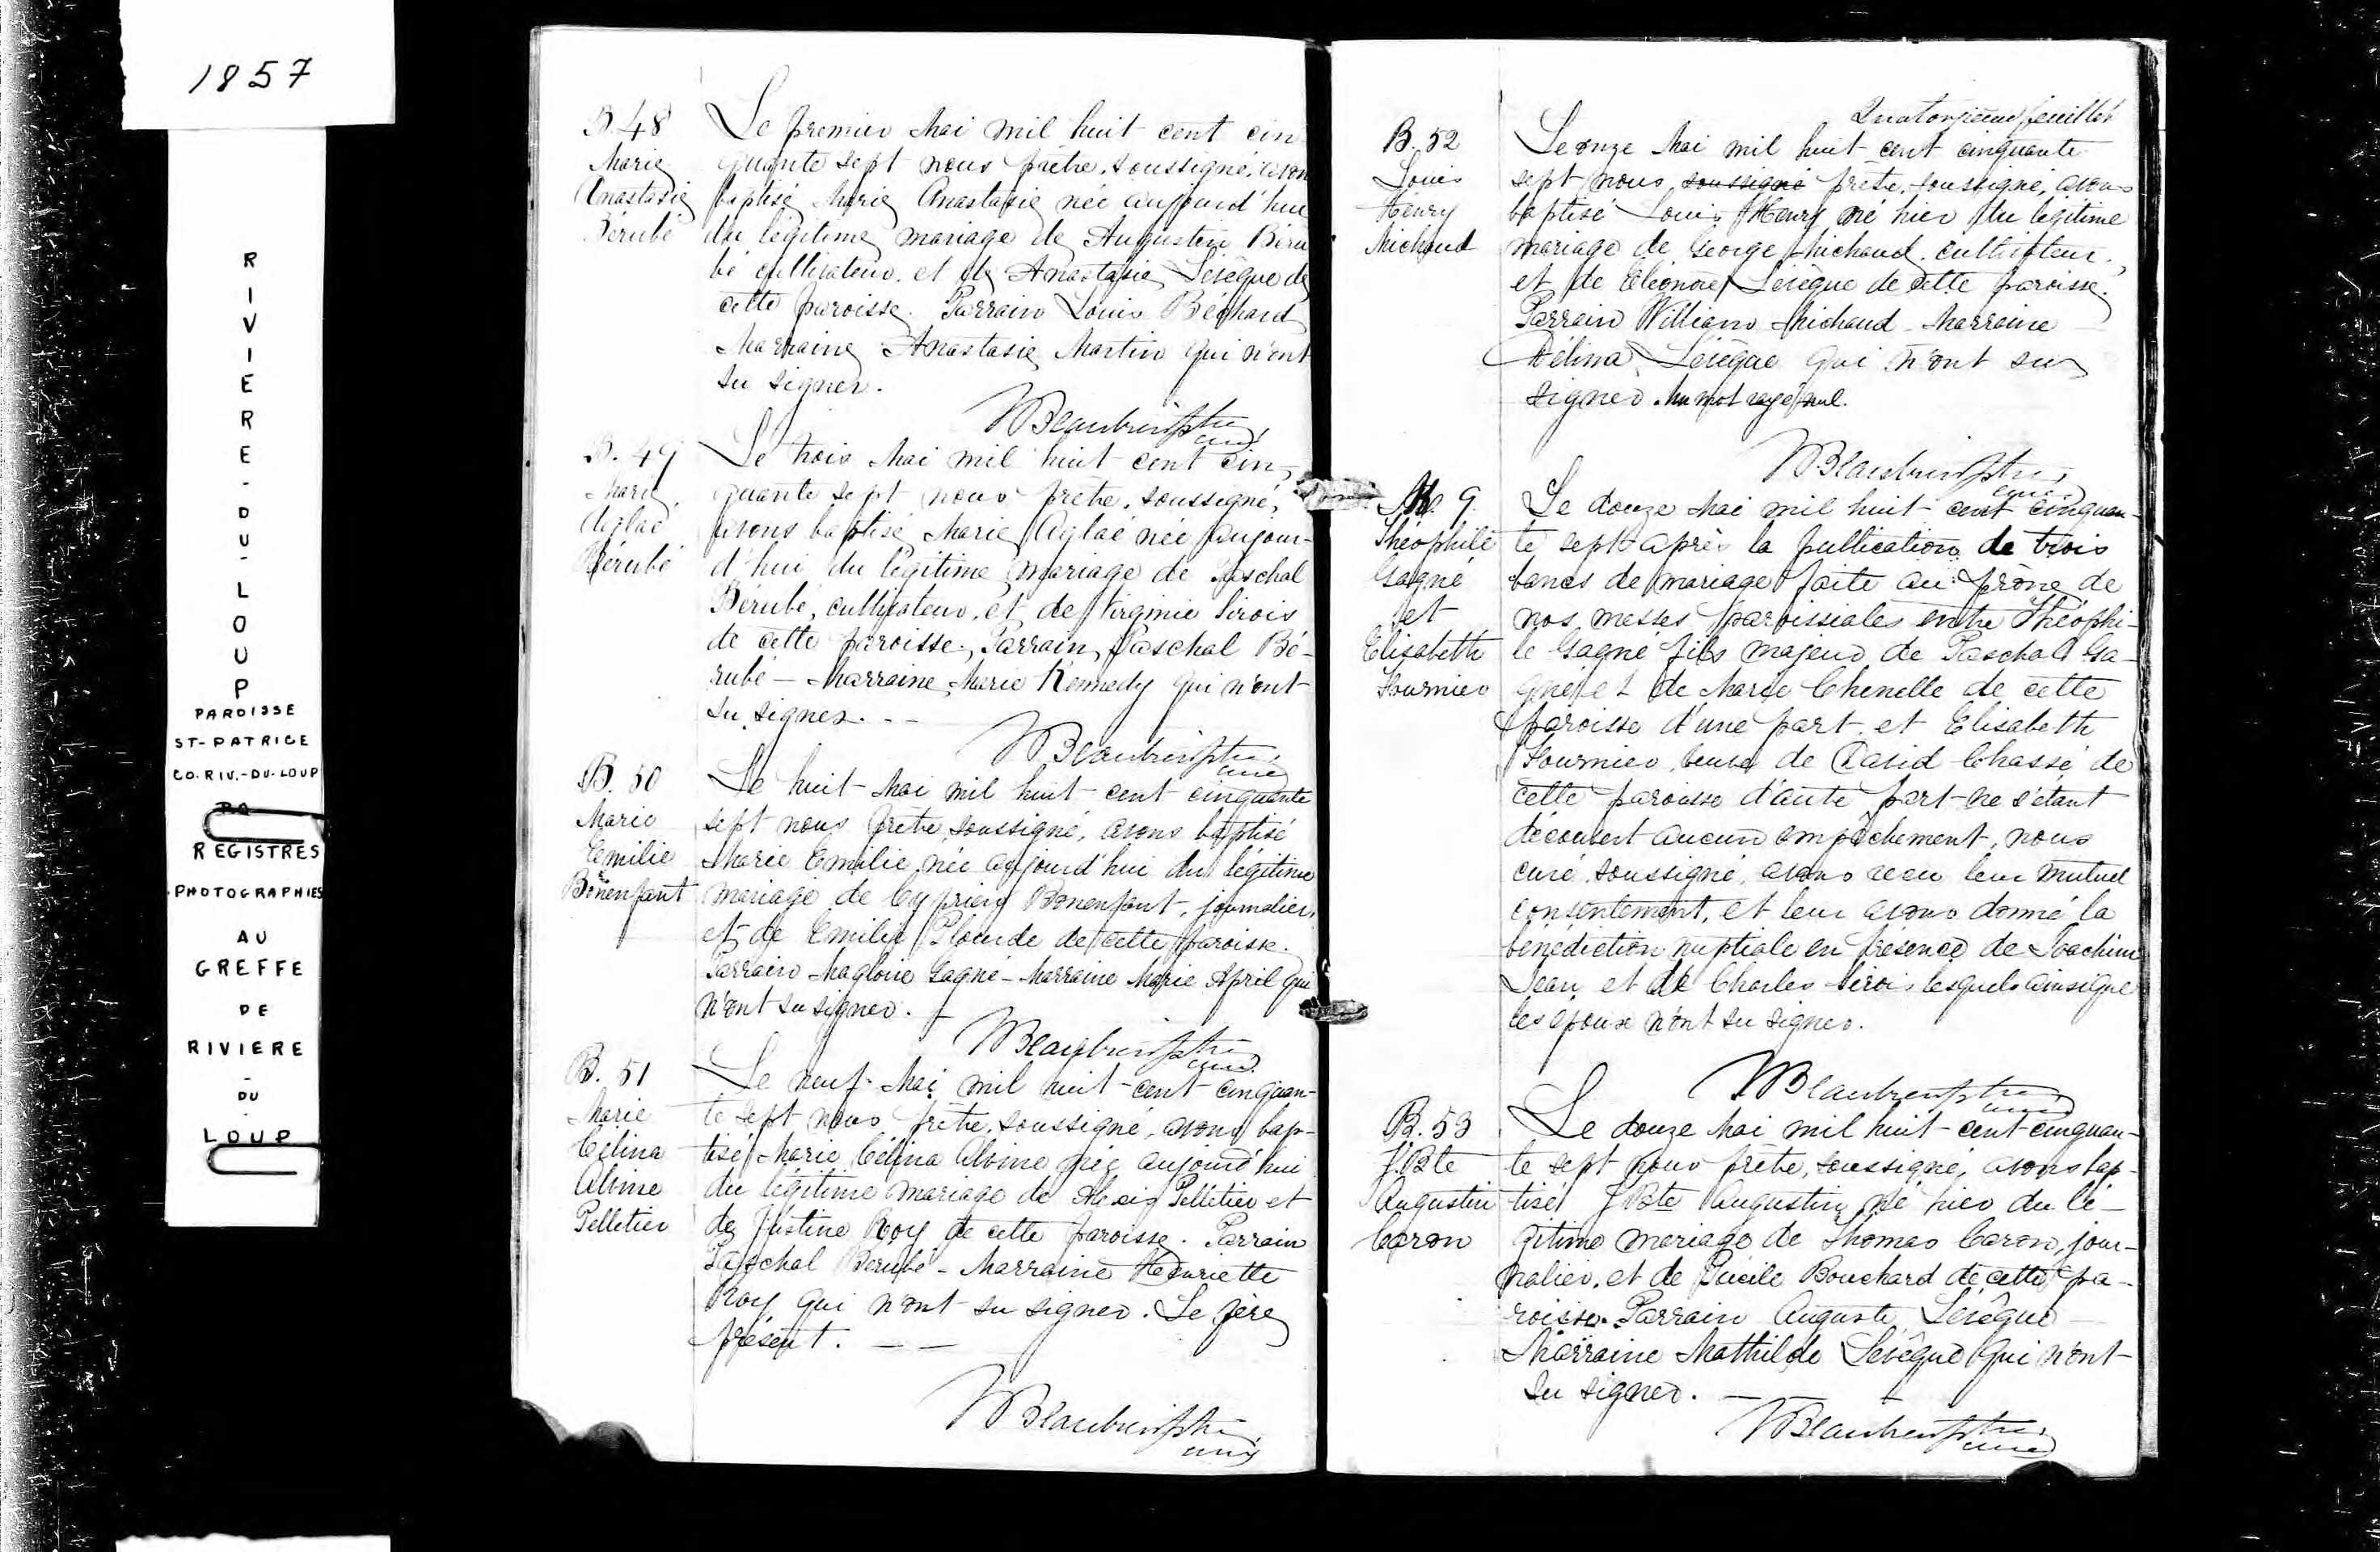 1857
RIVIERE-DU-LOUP
PAROISSE
ST-PATRICE
CO. RIV.-DU-LOUP
REGISTRES
PHOTOGRAPHIES
AU
GREFFE
DE
RIVIERE
-
DU
LOUP
B. 48
Marie
Anastasie
Bérubé
Le premier Mai mil huit cent cin
quante sept nous prêtre, soussigné, avons
baptisé Marie Anastasie née aujourd'hui
du légitime mariage de Augustin Béru
bé cultivateur, et de Anastasie Lévèque de
cette paroisse. Parrain Louis Béchard
Marraine Anastasie Martin qui n'ont
su signer.
Beaubien Ptre
curé
B. 49
Marie
Aglaé
Bérubé
Le trois Mai mil huit cent cin-
quante sept nous prêtre, soussigné,
avons baptisé Marie Aglaé née aujour-
d'hui du légitime mariage de Paschal
Bérubé, cultivateur, et de Virginie Sirois
de cette paroisse, Parrain, Paschal Bé-
rubé - Marraine, Marie Kennedy qui n'ont
su signer. --
Beaubien Ptre
curé
B. 50
Marie
Emilie
Bonenfant
Le huit Mai mil huit cent cinquante
sept nous prêtre, soussigné, avons baptisé
Marie Emilie née aujourd'hui du légitime
mariage de Cyprien Bonenfant, journalier,
et de Emilie Plourde de cette paroisse.
Parrain Magloire Gagné - Marraine Marie April qui
n'ont su signer. -
Beaubien Ptre
curé
B. 51
Marie
Célina
Alvine
Pelletier
Le neuf Mai mil huit cent cinquan-
te sept nous prêtre, soussigné, avons bap-
tisé Marie Célina Alvine née aujourd'hui
du légitime mariage de Alexis Pelletier et
de Justine Roy de cette paroisse. Parrain
Paschal Bérubé - Marraine Henriette
Roy qui n'ont su signer. Le père
présent. --
Beaubien Ptre
curé
Quatorzième feuillet
B. 52
Louis
Henry
Michaud
Le onze Mai mil huit cent cinquante
sept nous, soussigné prêtre, soussigné, avons
baptisé Louis Henry né hier du légitime
mariage de George Michaud, cultivateur,
et de Eléonore Lévèque de cette paroisse.
Parrain William Michaud - Marraine
Délina Lévèque qui n'ont su
signer. Un mot rayé nul.
Beaubien Ptre
curé
M. 9.
Théophile
Gagné
et
Elisabeth
Fournier
Le douze Mai mil huit cent cinquan-
te sept après la publication de trois
bancs de mariage faite au prône de
nos messes paroissiales entre Théophi-
le Gagné fils majeur de Paschal Ga-
gné et de Marie Chenelle de cette
paroisse d'une part, et Elisabeth
Fournier, veuve de David Chassé de
cette paroisse d'autre part - ne s'étant
découvert aucun empêchement, nous
curé, soussigné, avons reçu leur mutuel
consentement, et leur avons donné la
bénédiction nuptiale en présence de Joachim
Jean et de Charles Sirois lesquels ainsi que
les époux n'ont su signer.
Beaubien Ptre
curé
B. 53
J. Bte
Augustin
Caron
Le douze Mai mil huit cent cinquan-
te sept nous prêtre, soussigné, avons bap-
tisé J Bte Augustin né hier du lé-
gitime mariage de Thomas Caron, jour-
nalier, et de Lucile Bouchard de cette pa-
roisse. Parrain Auguste Lévêque
Marraine Mathilde Levêque qui n'ont
su signer. -
Beaubien Ptre
curé